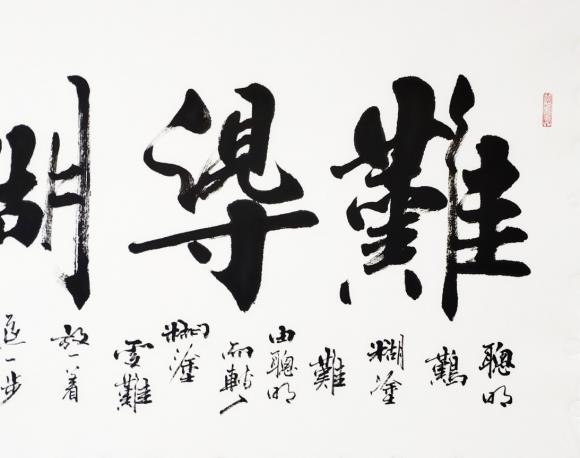 難得胡
聰明
難
糊塗
難
由聰明
而轉入
糊塗
更難
放一着
退一步